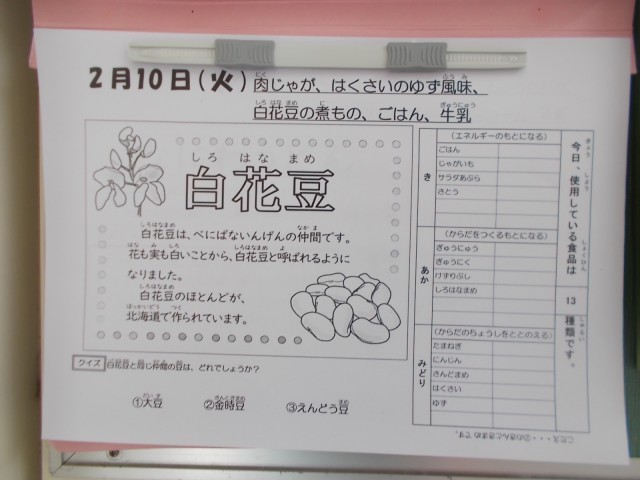 2月10日(火) 肉じゃが、はくさいのゆず風味、
白花豆の煮もの、ごはん、牛乳
しろ はな まめ
白花豆
白花豆は、べにばないんげんの仲間です。
花も実も白いことから、白花豆と呼ばれるように
なりました。
白花豆のほとんどが、
北海道で作られています。
クイズ 白花豆と同じ仲間の豆は、どれでしょうか?
①大豆 ②金時豆 ③えんどう豆
き
(エネルギーのもとになる)
ごはん
じゃがいも
サラダあぶら
さとう
あか
(からだをつくるもとになる)
ぎゅうにゅう
ぎゅうにく
けずりぶし
しろはなまめ
みどり
(からだのちょうしをととのえる)
たまねぎ
にんじん
さんどまめ
はくさい
ゆず
今日、使用している食品は
13
種類です。
こたえ・・・②のきんときまめです。